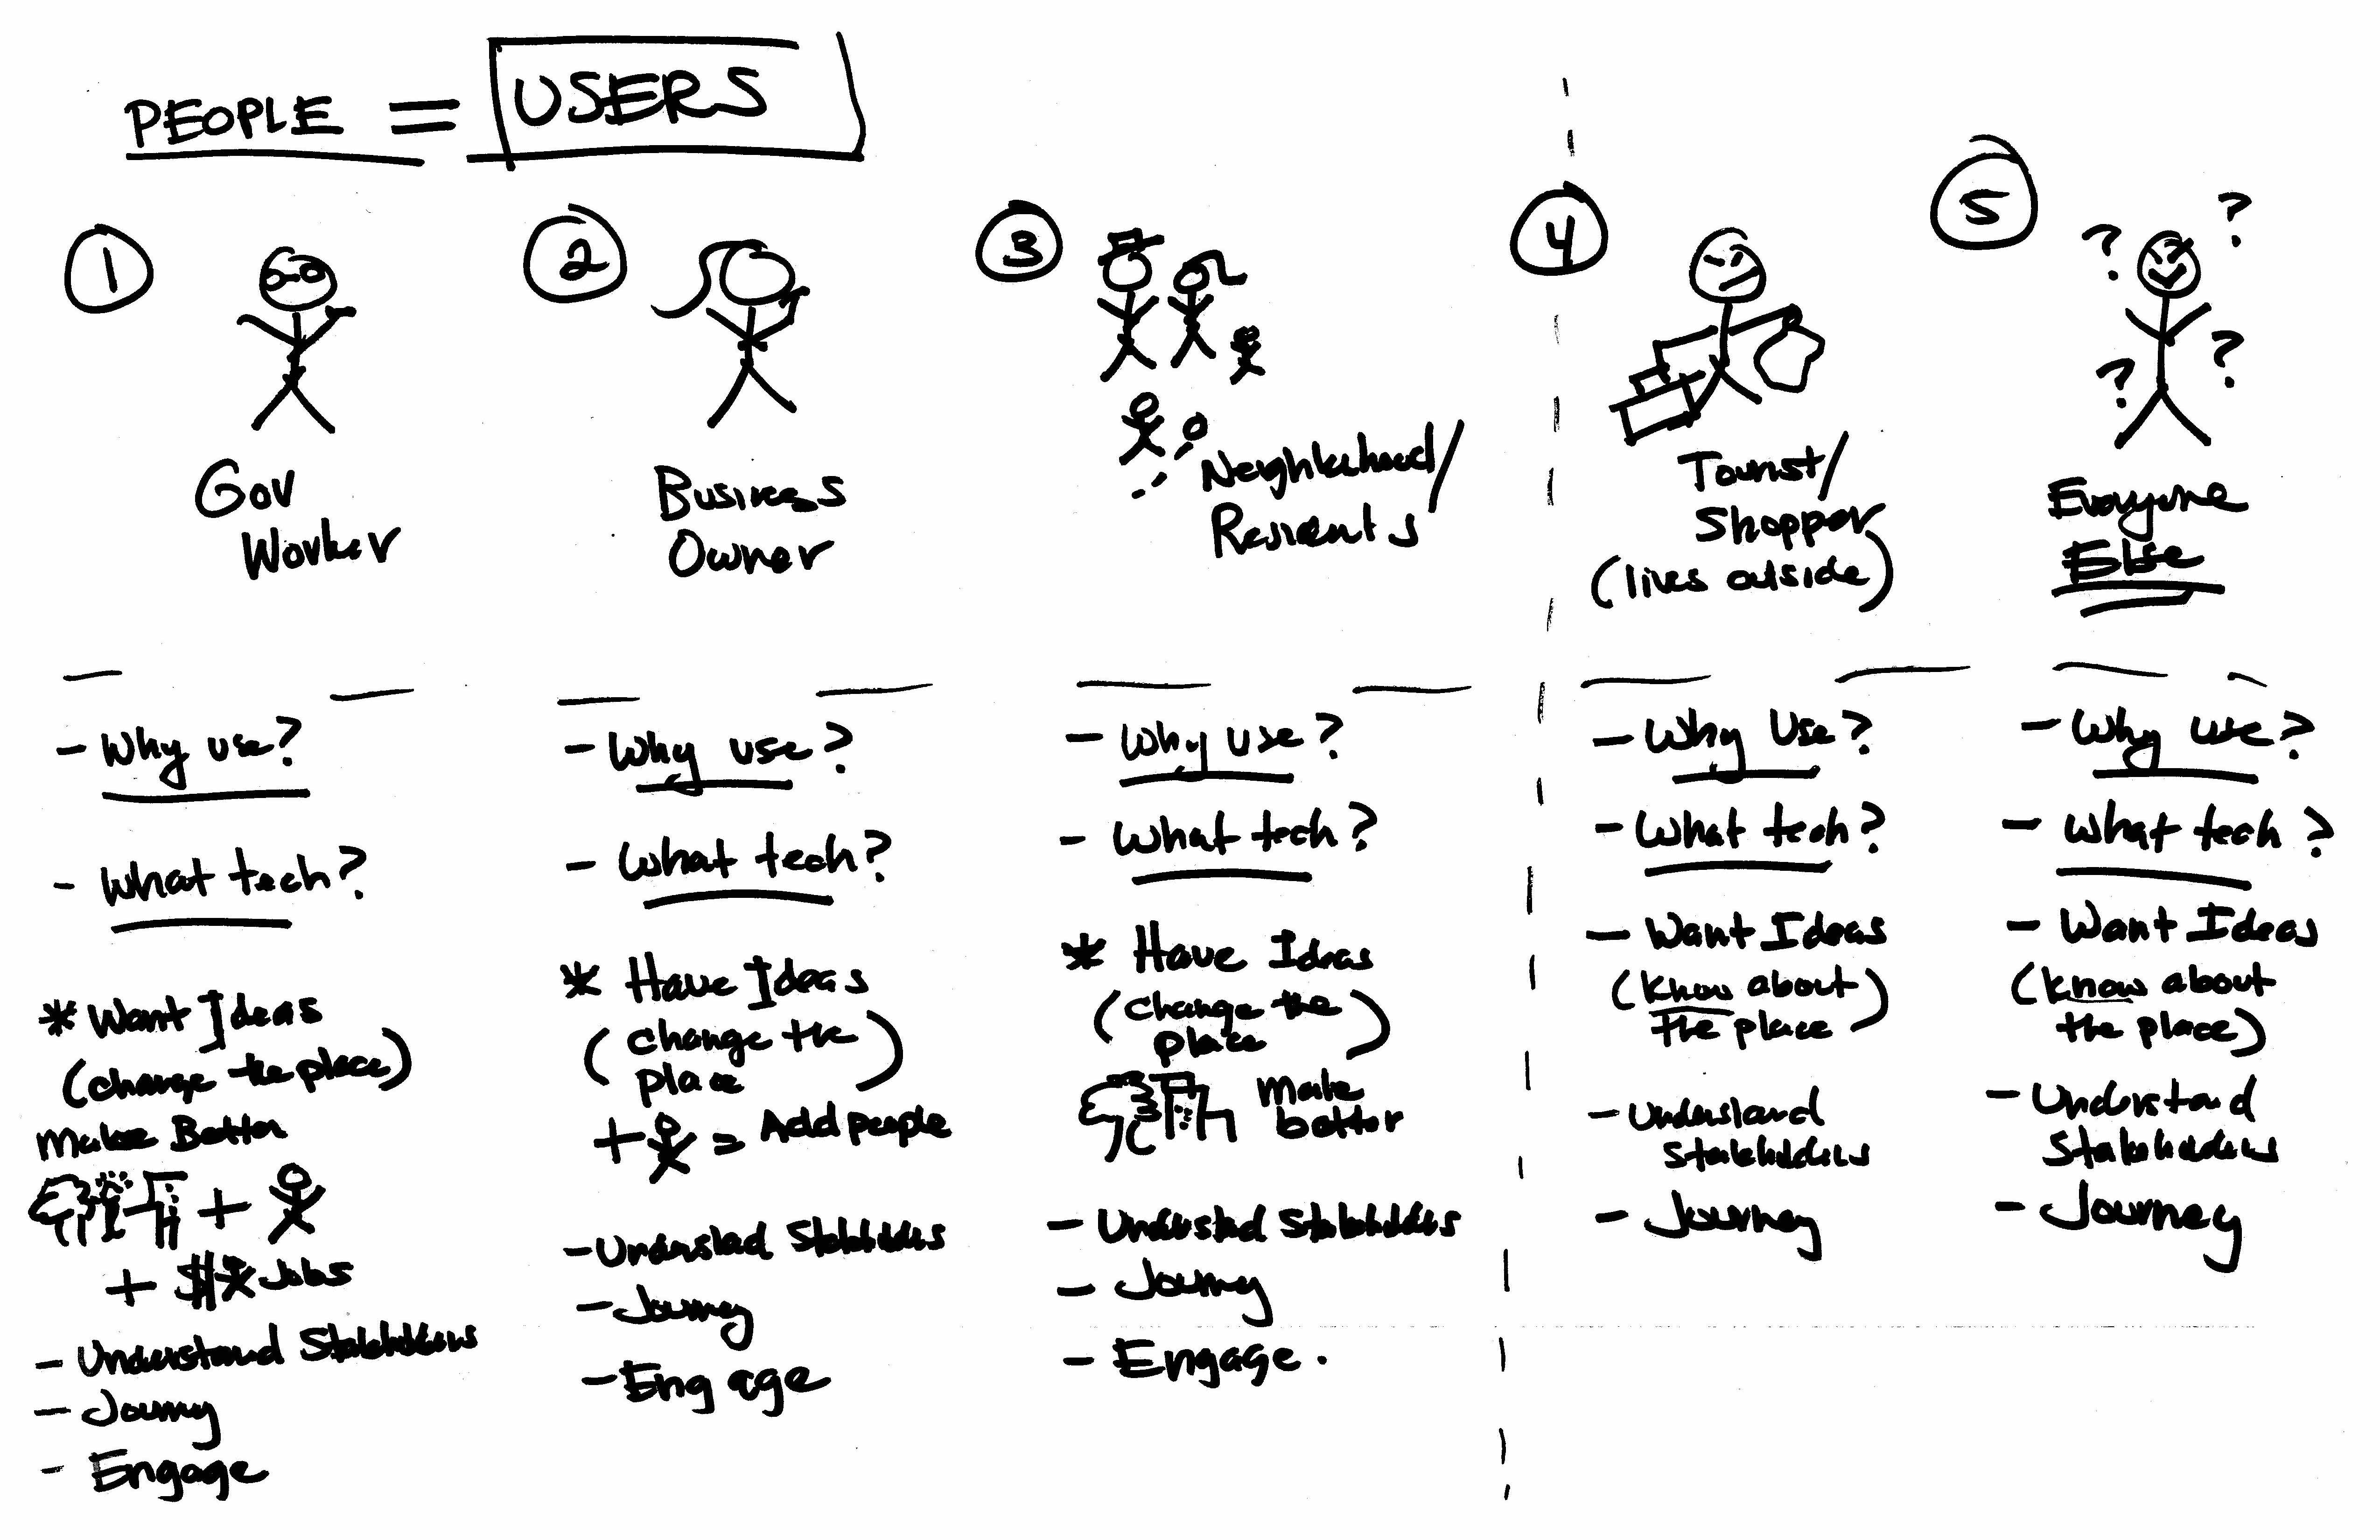 PEOPLE = USERS
1
Gov
Worker
- Why use?
- What tech?
* Want Ideas
(change the place)
Make Better
+
+ $ Jobs
- Understand Stakeholders
- Journey
- Engage
2
Business
Owner
- Why use?
- What tech?
* Have Ideas
(change the
place)
+ = Add people
- Understand Stakeholders
- Journey
- Engage
3
Neighborhood/
Residents
- Why use?
- What tech?
* Have Ideas
(change the
place)
Make
better
- Understand Stakeholders
- Journey
- Engage.
4
Tourist/
Shopper
(lives outside)
- Why Use?
- What tech?
- Want Ideas
(know about
the place)
- Understand
Stakeholders
- Journey
5
? ?
? ?
Everyone
Else
- Why use?
- What tech?
- Want Ideas
(know about
the place)
- Understand
Stakeholders
- Journey